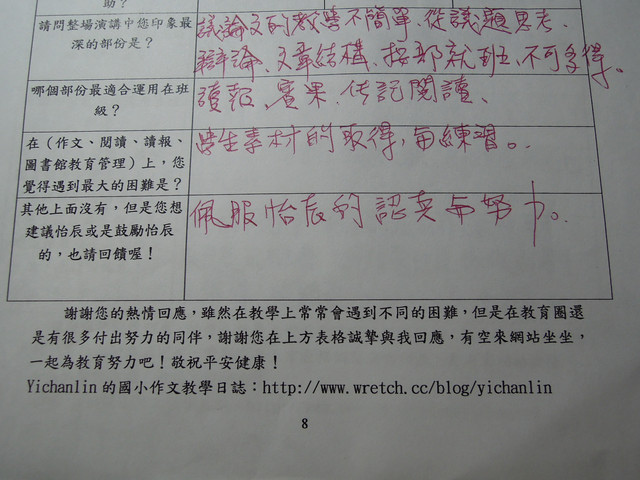 助？
請問整場演講中您印象最
深的部份是？
議論文的教學不簡單、從議題思考、
辯論、文章結構、按部就班、不可多得。
哪個部份最適合運用在班
級？
讀報、賓果、传記閱讀、
在（作文、閱讀、讀報、
圖書館教育管理）上，您
覺得遇到最大的困難是？
學生素材的取得，与練習。
其他上面沒有，但是您想
建議怡辰或是鼓勵怡辰
的，也請回饋喔！
佩服怡辰的認真与努力。
謝謝您的熱情回應，雖然在教學上常常會遇到不同的困難，但是在教育圈還
是有很多付出努力的同伴，謝謝您在上方表格誠摯與我回應，有空來網站坐坐，
一起為教育努力吧！敬祝平安健康！
Yichanlin 的國小作文教學日誌：http://www.wretch.cc/blog/yichanlin
8